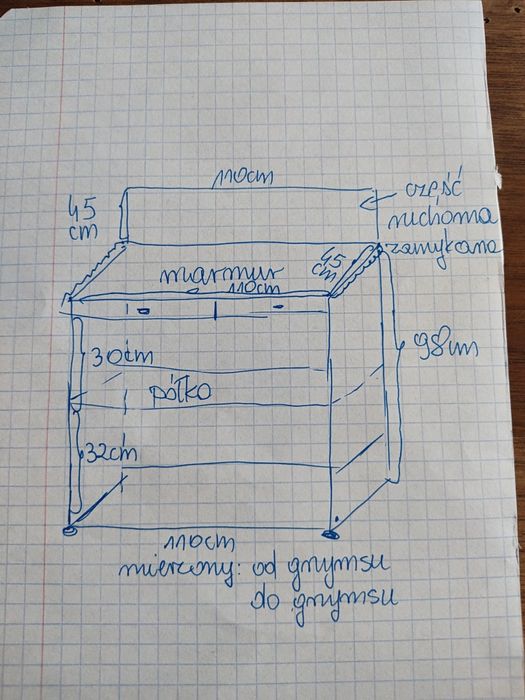 110cm
45
cm
część
ruchoma
zamykana
45
cm
marmur
110cm
30cm
98cm
półka
32cm
110cm
mierzony: od gzymsu
do gzymsu